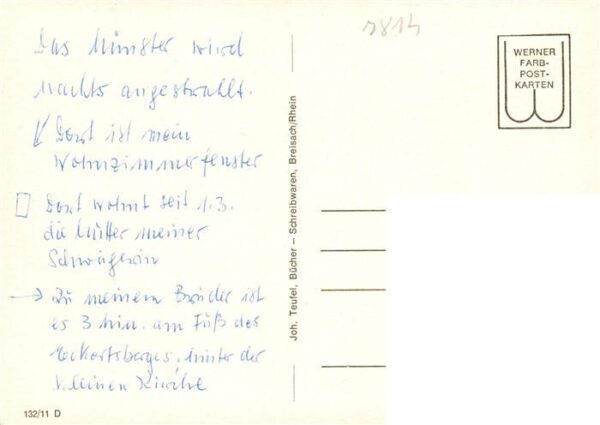 Das Münster wird
nachts angestrahlt.
Dort ist mein
Wohnzimmerfenster
Dort wohnt seit 1.3.
die Mutter meiner
Schwägerin
→ Zu meinem Bruder ist
es 3 Min. am Fuß des
Eckartsberges, hinter der
kleinen Kirche
132/11 D
Joh. Teufel, Bücher – Schreibwaren, Breisach/Rhein
7814
WERNER
FARB-
POST-
KARTEN